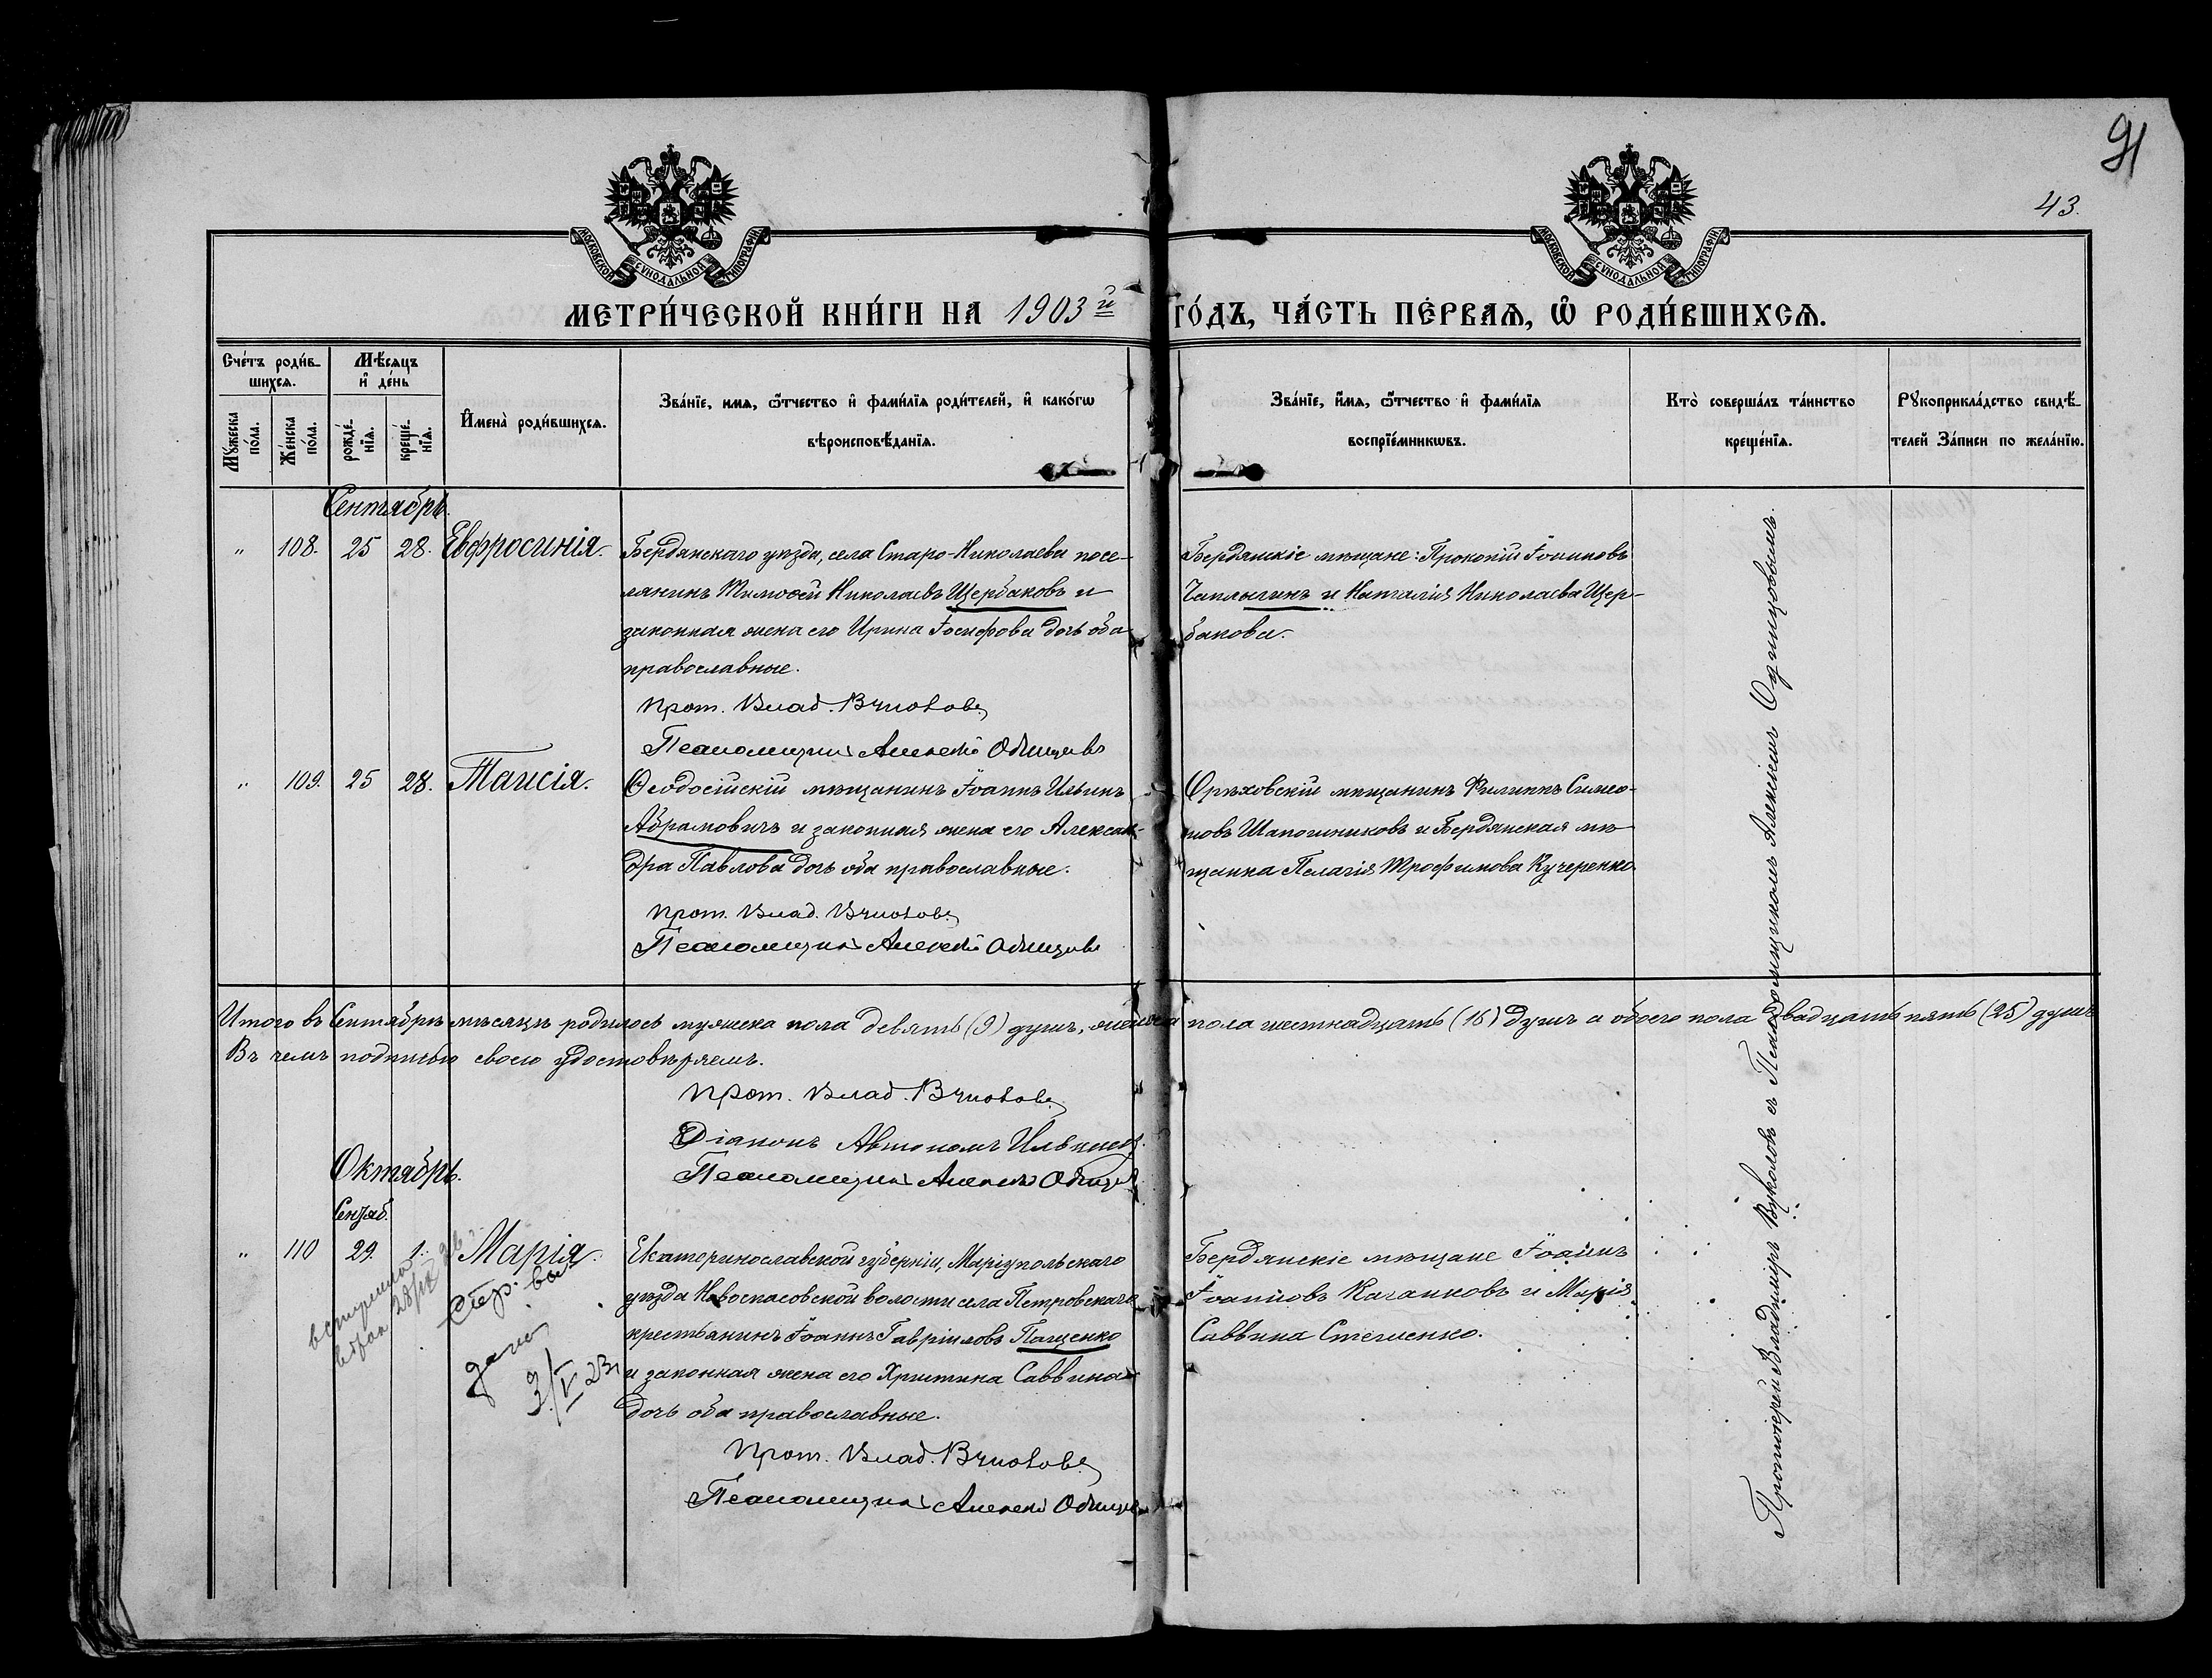 91
43.
МОСКОВСКОЙ СѴНОДАЛЬНОЙ ТИПОГРАФІИ
МОСКОВСКОЙ СѴНОДАЛЬНОЙ ТИПОГРАФІИ
МЕТРИ́ЧЕСКОЙ КНИ́ГИ НА 1903й ГО́ДЪ, ЧА́СТЬ ПЕ́РВАѦ, Ѡ҆ РОДИ́ВШИХСѦ.
Сче́тъ роди́в-
шихсѧ.
Мꙋ́жеска по́ла.
Же́нска по́ла.
Мѣ́сѧцъ
и҆ де́нь
рожде́-
нїѧ.
креще́-
нїѧ.
И҆мена̀ роди́вшихсѧ.
Зва́нїе, имѧ, ѻ҆́тчество и҆ фами́лїѧ роди́телей, и҆ како́гѡ
вѣроисповѣ́данїѧ.
Зва́нїе, и҆́мѧ, ѻ҆́тчество и҆ фами́лїѧ
воспрїе́мникѡвъ.
Кто̀ соверша́лъ та́инство
креще́нїѧ.
Рꙋкоприкла́дство свидѣ́-
телей За́писи по жела́нїю.
Сентябрь.
" 108. 25 28. Евфросинія.
Бердянскаго уѣзда, села Старо-Николаевки посе-
лянинъ Тимоѳей Николаевъ Щербаковъ и
законная жена его Ирина Іосифова дочь оба
православные.
Прот. Влад. Вуколовъ
Псаломщикъ Алексій Одинцовъ
Бердянскіе мѣщане: Прокопій Іоанновъ
Чаплыгинъ и Наталія Николаева Щер-
бакова.
" 109. 25 28. Таисія.
Ѳеодосійскій мѣщанинъ Іоаннъ Ильинъ
Абрамовичъ и законная жена его Алексан-
дра Павлова дочь оба православные.
Прот. Влад. Вуколовъ
Псаломщикъ Алексій Одинцовъ
Орѣховскій мѣщанинъ Филиппъ Симео-
новъ Шапошниковъ и Бердянская мѣ-
щанка Пелагія Трофимова Кучеренко.
Итого въ Сентябрѣ мѣсяцѣ родилось мужеска пола девять (9) душъ, женска пола шестнадцать (16) душъ а обоего пола двадцать пять (25) душъ
Въ чемъ подписью своею удостовѣряемъ.
Прот. Влад. Вуколовъ
Діаконъ Автономъ
Псаломщикъ Алексій Одинцовъ
Октябрь.
Сентяб.
" 110 29. 1. Марія.
Екатеринославской губерніи, Маріупольскаго
уѣзда Новоспасовской волости села Петровскаго
крестьянинъ Іоаннъ Гавріиловъ Пащенко
и законная жена его Христина Саввина
дочь оба православные.
Прот. Влад. Вуколовъ
Псаломщикъ Алексій Одинцовъ
3/V 23
Бердянскіе мѣщане Іоаннъ
Іоанновъ Качанковъ и Марія
Саввина Стешенко.
Протоіерей Владиміръ Вуколовъ съ Псаломщикомъ Алексіемъ Одинцовымъ.